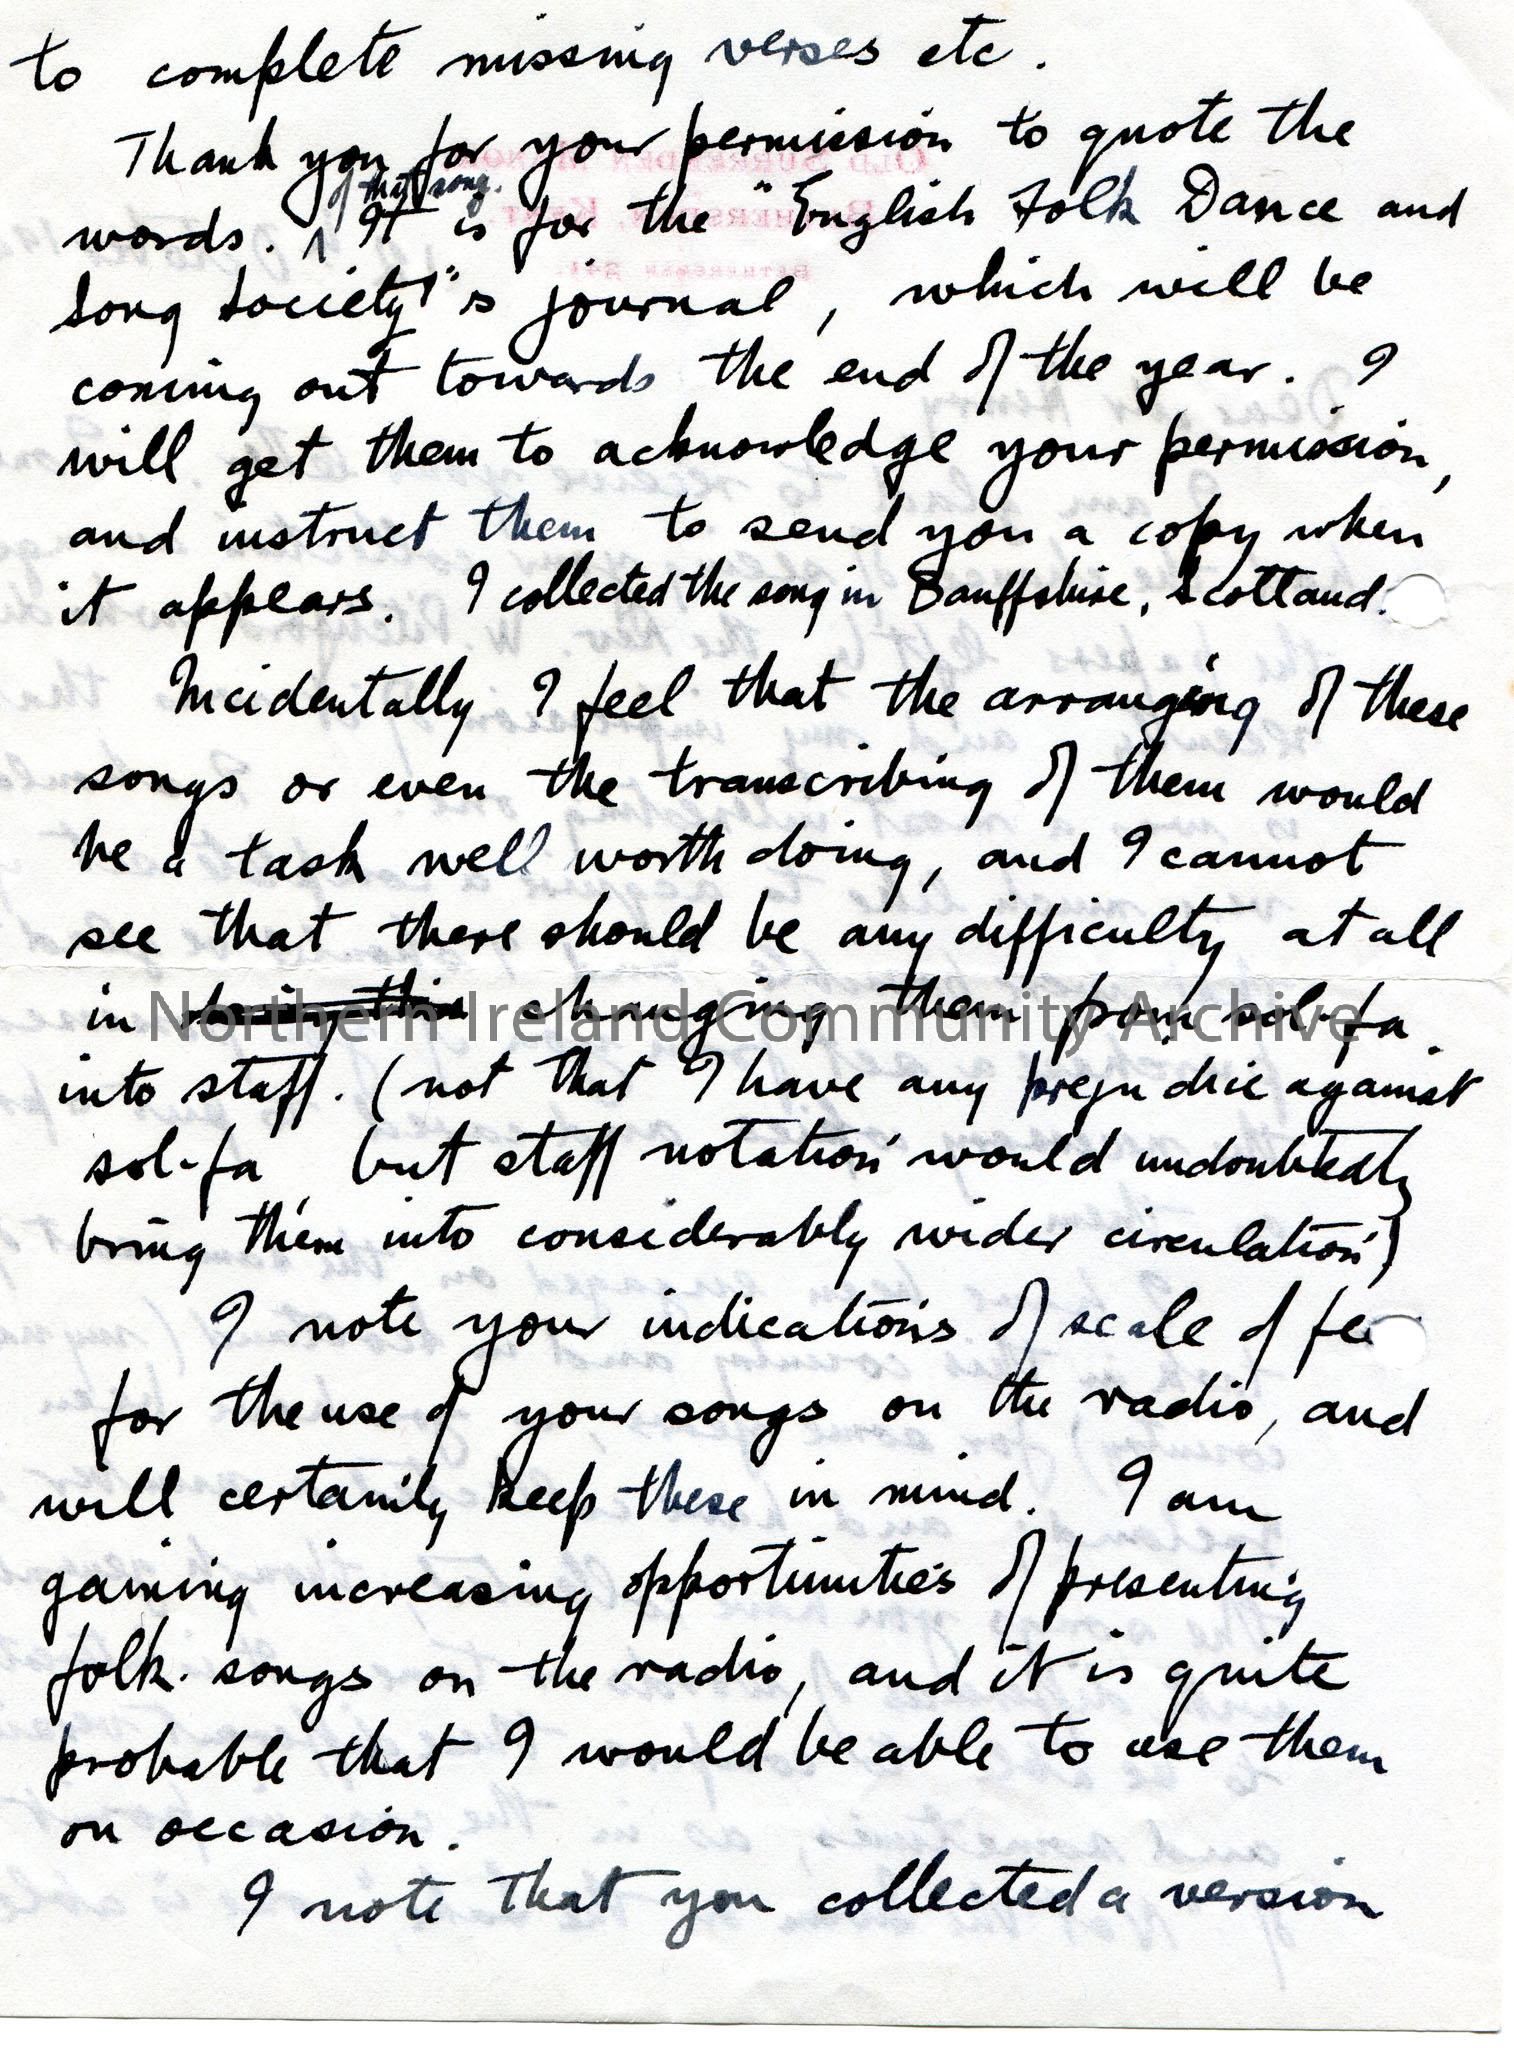 to complete missing verses etc.
Thank you for your permission to quote the
of that song.
words. ∧ It is for the "English Folk Dance and
Song Society"'s journal, which will be
coming out towards the end of the year. I
will get them to acknowledge your permission,
and instruct them to send you a copy when
it appears. I collected the song in Banffshire, Scotland.
Incidentally I feel that the arranging of these
songs or even the transcribing of them would
be a task well worth doing, and I cannot
see that there should be any difficulty at all
in changing them from sol-fa
into staff. (not that I have any prejudice against
sol-fa but staff notation would undoubtedly
bring them into considerably wider circulation)
I note your indications of scale of fe
for the use of your songs on the radio, and
will certainly keep these in mind. I am
gaining increasing opportunities of presenting
folk. songs on the radio, and it is quite
probable that I would be able to use them
on occasion.
I note that you collected a version
Northern Ireland Community Archive